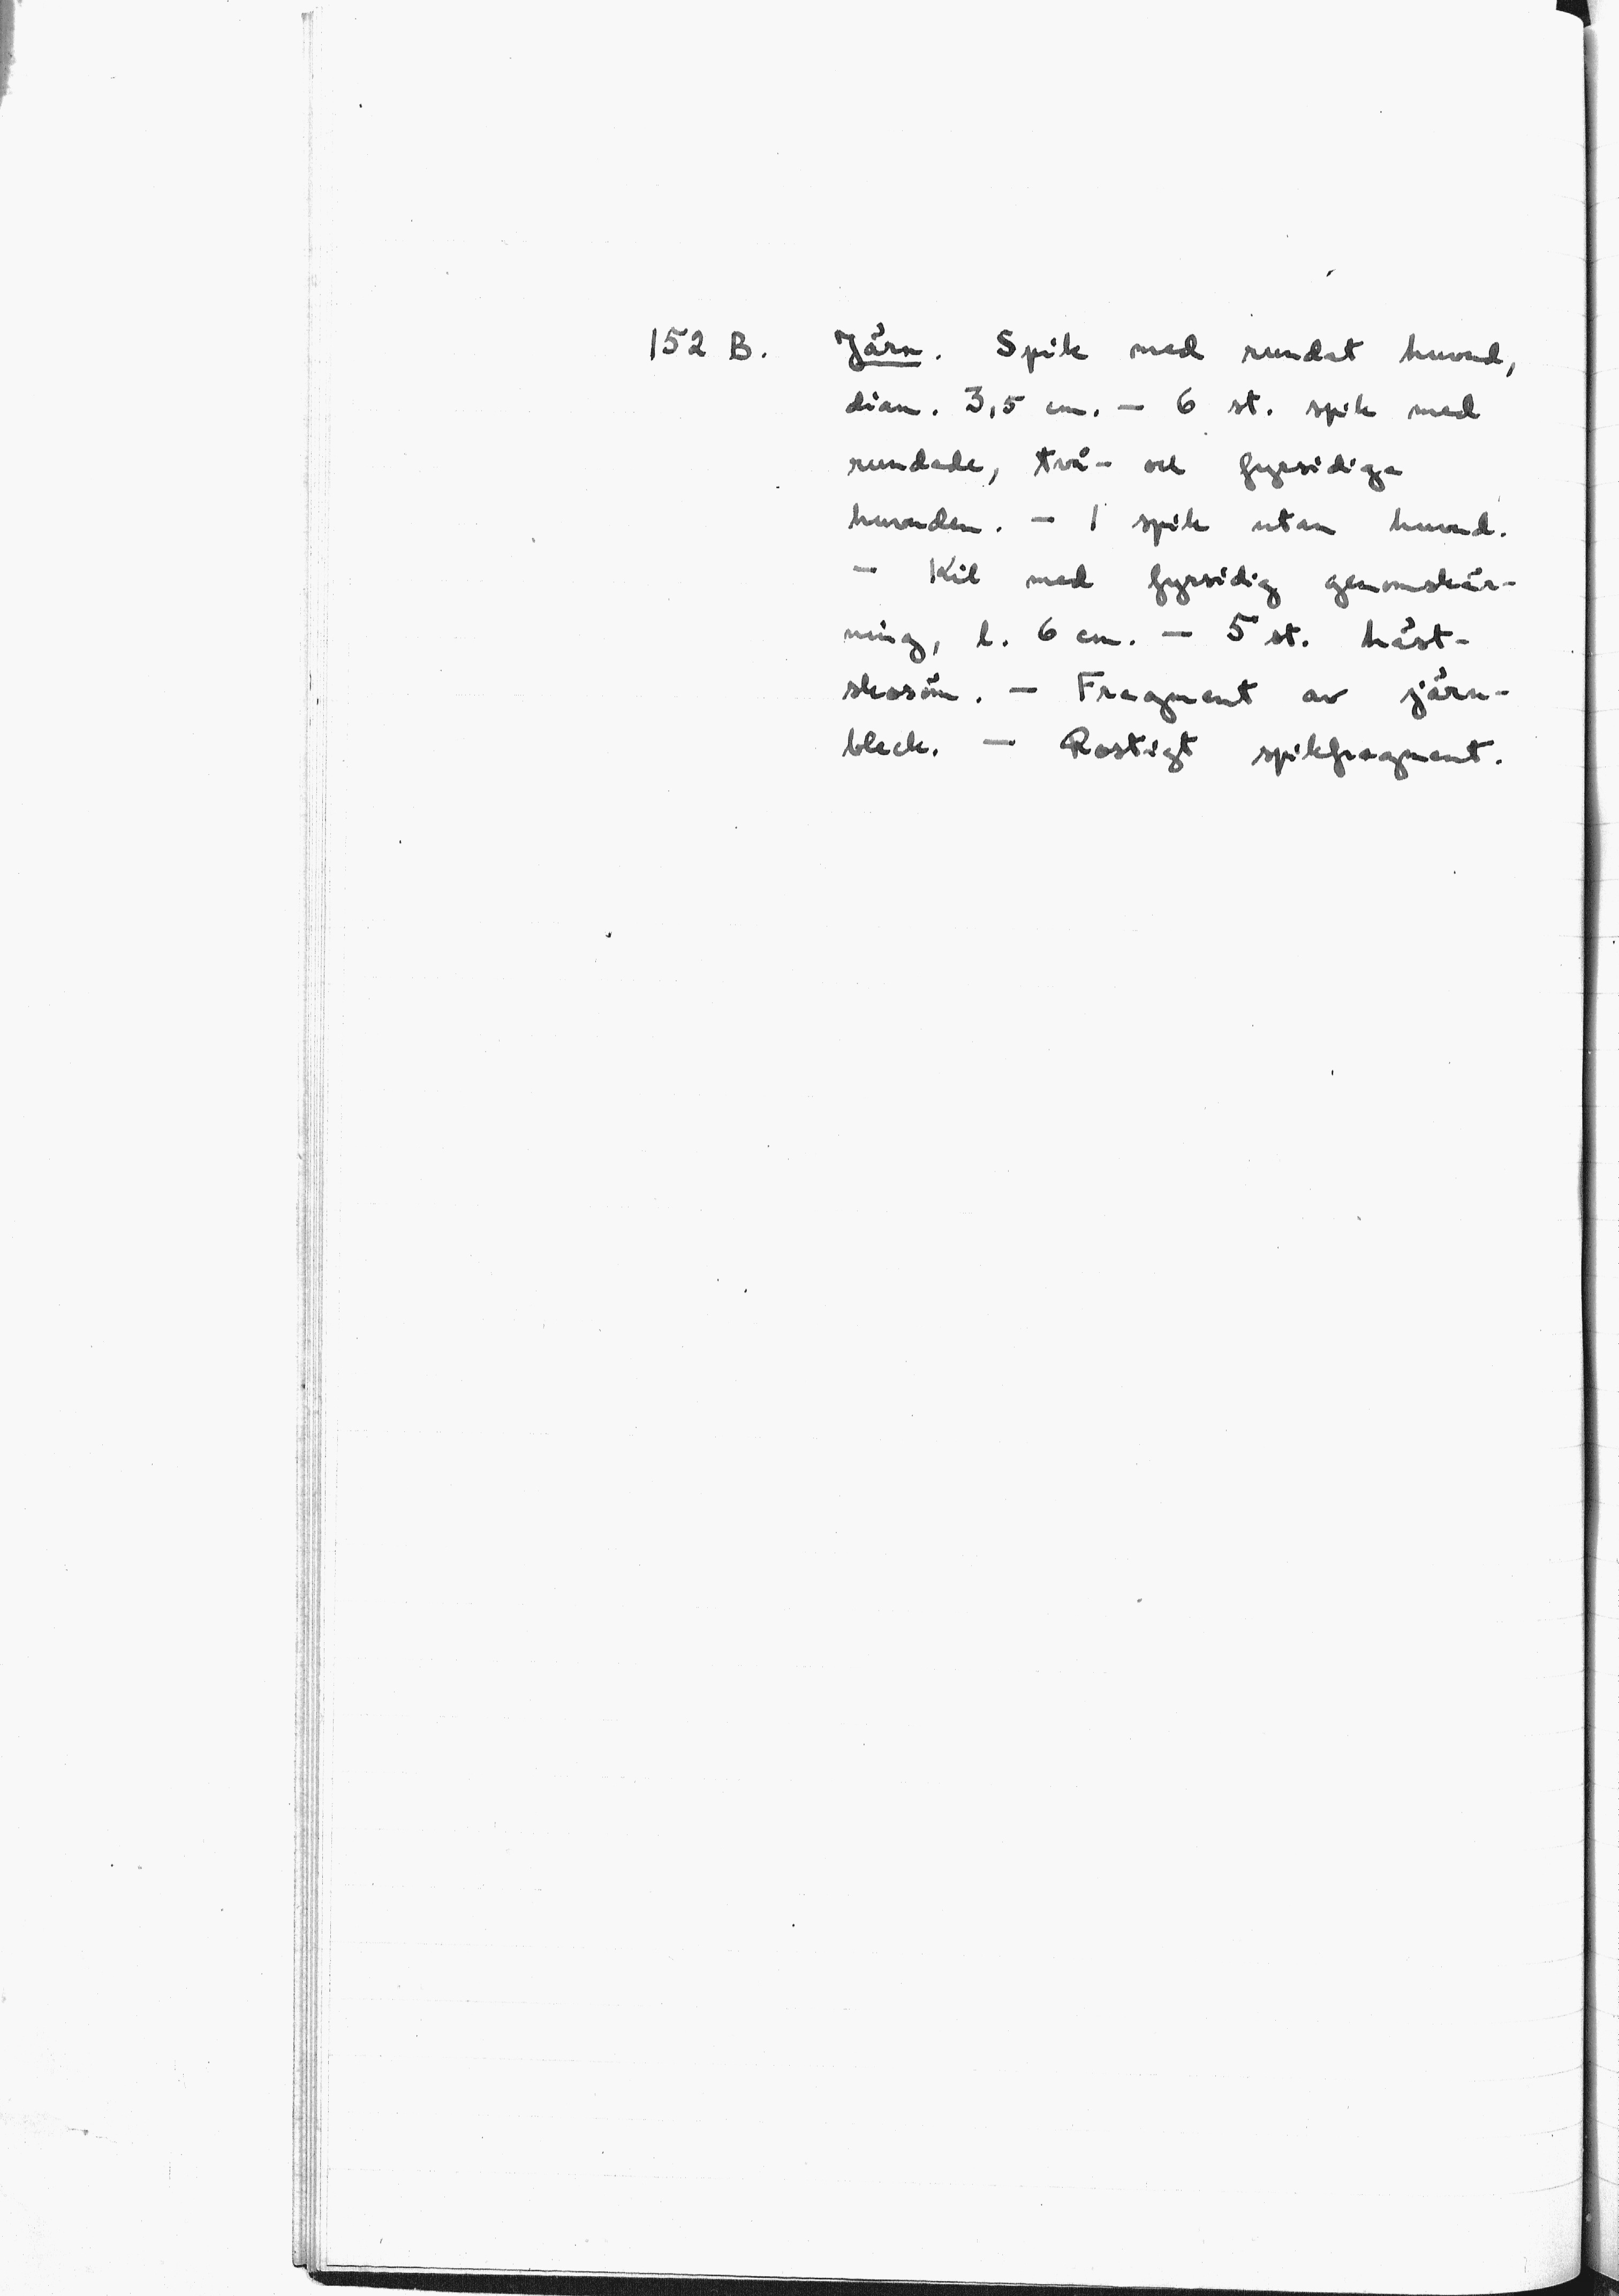 152 B. Järn. Spik med rundat huvud,
diam. 3,5 cm. — 6 st. spik med
rundade, två- och fyrsidiga
huvuden. — 1 spik utan huvud.
— Kil med fyrsidig genomskär-
ning, l. 6 cm. — 5 st. häst-
skosöm. — Fragment av järn-
bleck. — Rostigt spikfragment.